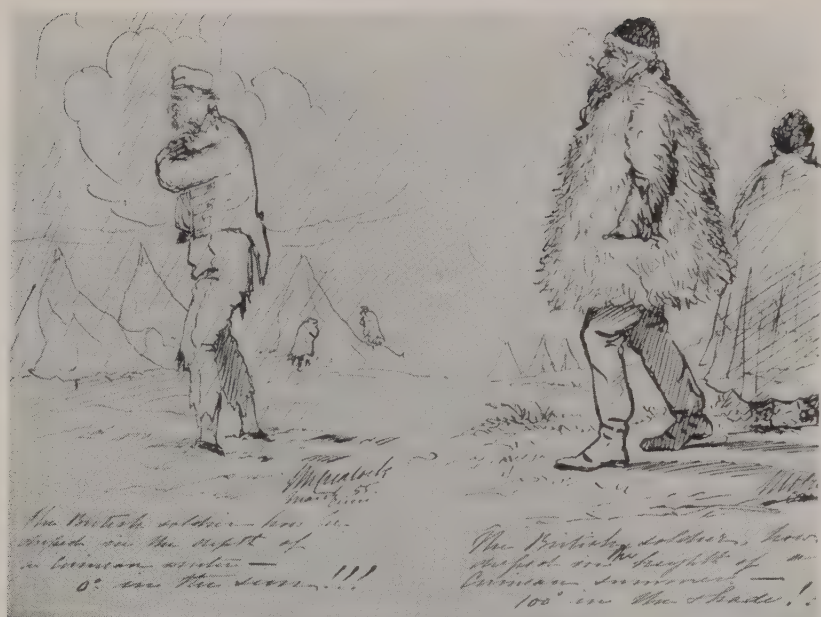 March 55
The British soldier – how he
dressed in the depth of
a Crimean winter –
0° in the sun_!!!
The British soldier, how
dressed in the height of a
Crimean summer –
100° in the shade!!